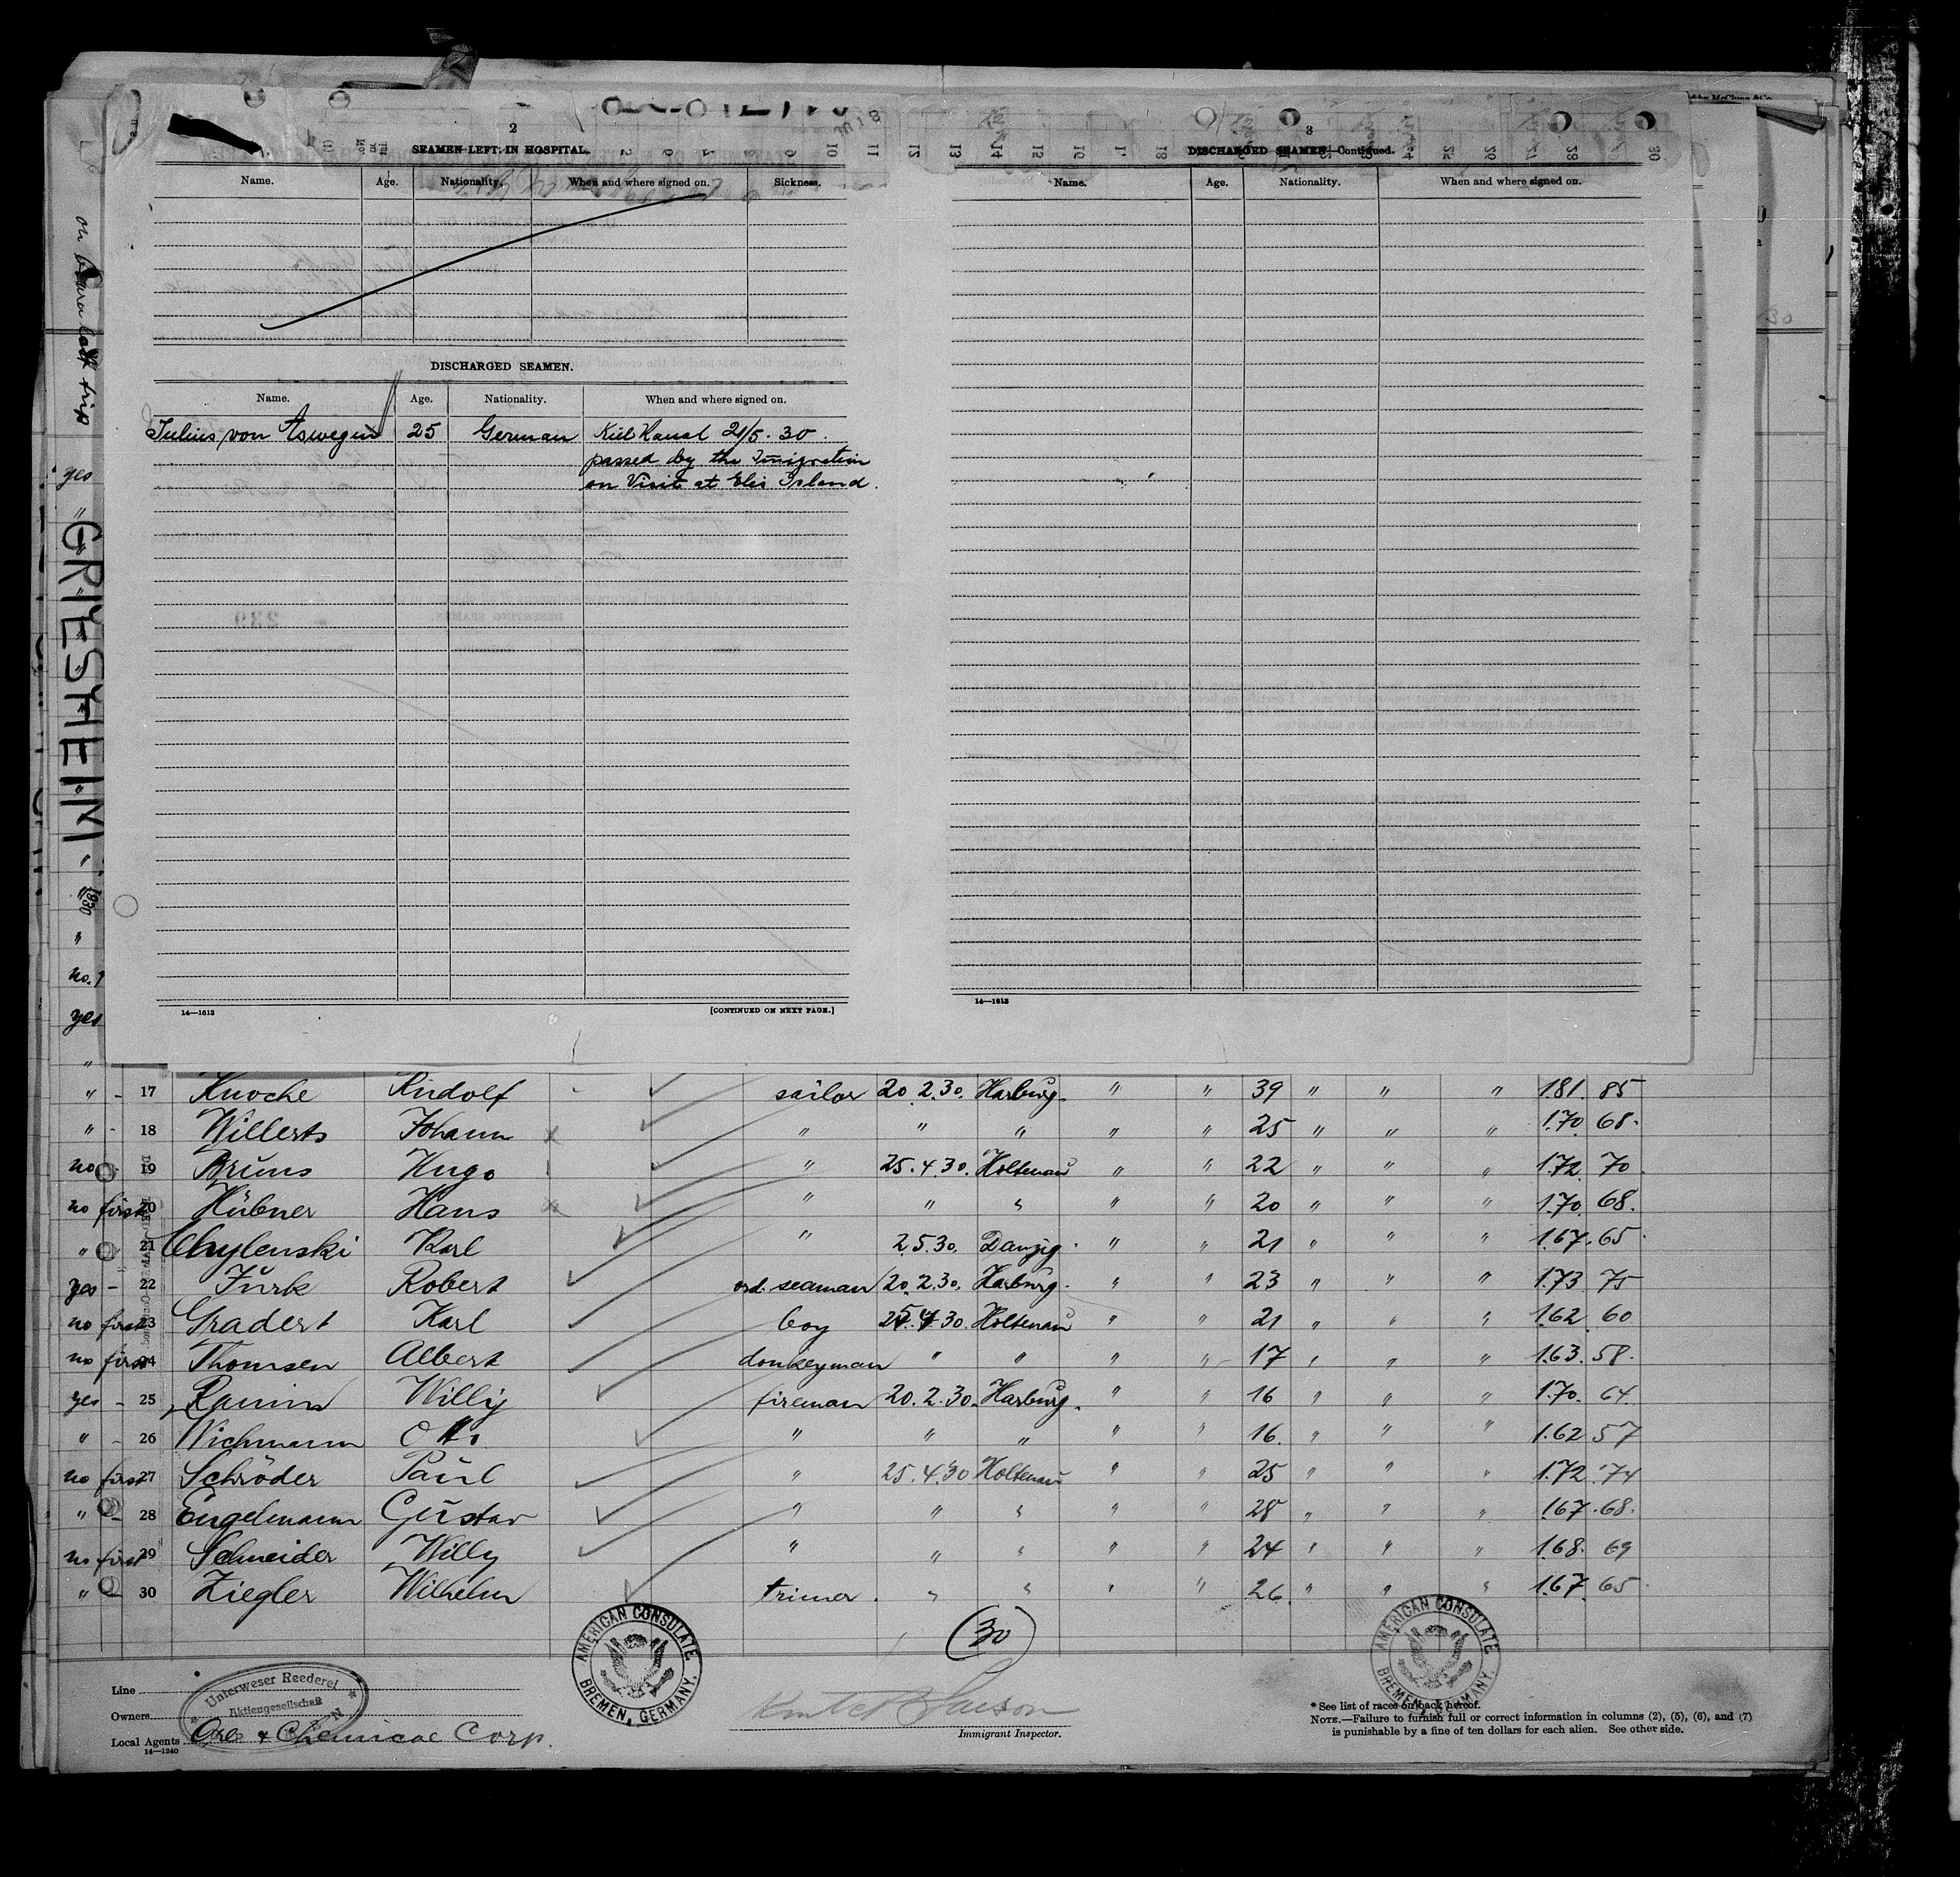 2
SEAMEN LEFT IN HOSPITAL.
Name. Age. Nationality. When and where signed on. Sickness.
DISCHARGED SEAMEN.
Name. Age. Nationality. When and where signed on.
Julius von Aswegen 25 German Kiel Kanal 21/5. 30.
passed by the Imigration
on Visit at Elis Island.
14—1613 [CONTINUED ON NEXT PAGE.]
3
DISCHARGED SEAMEN—Continued.
Name. Age. Nationality. When and where signed on.
14—1613
on board last trip
GRIESHEIM
1930
yes
"
"
no.
yes
"
" - 17 Knoche Rudolf sailor 20.2.30. Harburg. " " 39 " " " 1.81. 85
" - 18 Willerts Johann x " " " " " 25 " " " 1.70. 68.
no - 19 Bruns Hugo " 25.4.30. Holtenau " " 22 " " " 1.72. 70
no first 20 Hübner Hans x " " " " " 20 " " " 1.70. 68.
" 21 Chylenski Karl " 2.5.30. Danzig. " " 21 " " " 1.67. 65
yes - 22 Furk Robert ord. seaman 20.2.30. Harburg. " " 23 " " " 1.73. 75
no first 23 Gradert Karl boy 25.4.30 Holtenau " " 21 " " " 1.62. 60
no first 24 Thomsen Albert donkeyman " " " " 17 " " " 1.63. 58.
yes - 25 Ramin Willy fireman 20.2.30. Harburg. " " 16 " " " 1.70. 64.
" - 26 Wichmann Otto " " " " " 16. " " " 1.62 57
no first 27 Schröder Paul " 25.4.30 Holtenau " " 25 " " " 1.72. 74
" - 28 Engelmann Gustav " " " " " 28 " " " 1.67. 68.
no first 29 Schneider Willy " " " " " 24 " " " 1.68. 69
" - 30 Ziegler Wilhelm trimer. " " " " 26. " " " 1.67. 65.
(30)
AMERICAN CONSULATE,
BREMEN, GERMANY.
AMERICAN CONSULATE
BREMEN, GERMANY.
Line
Owners
Unterweser Reederei
Aktiengesellschaft
Local Agents & Chemical Corp.
14—1240
Immigrant Inspector.
* See list of races on back hereof.
NOTE.—Failure to furnish full or correct information in columns (2), (5), (6), and (7)
is punishable by a fine of ten dollars for each alien. See other side.